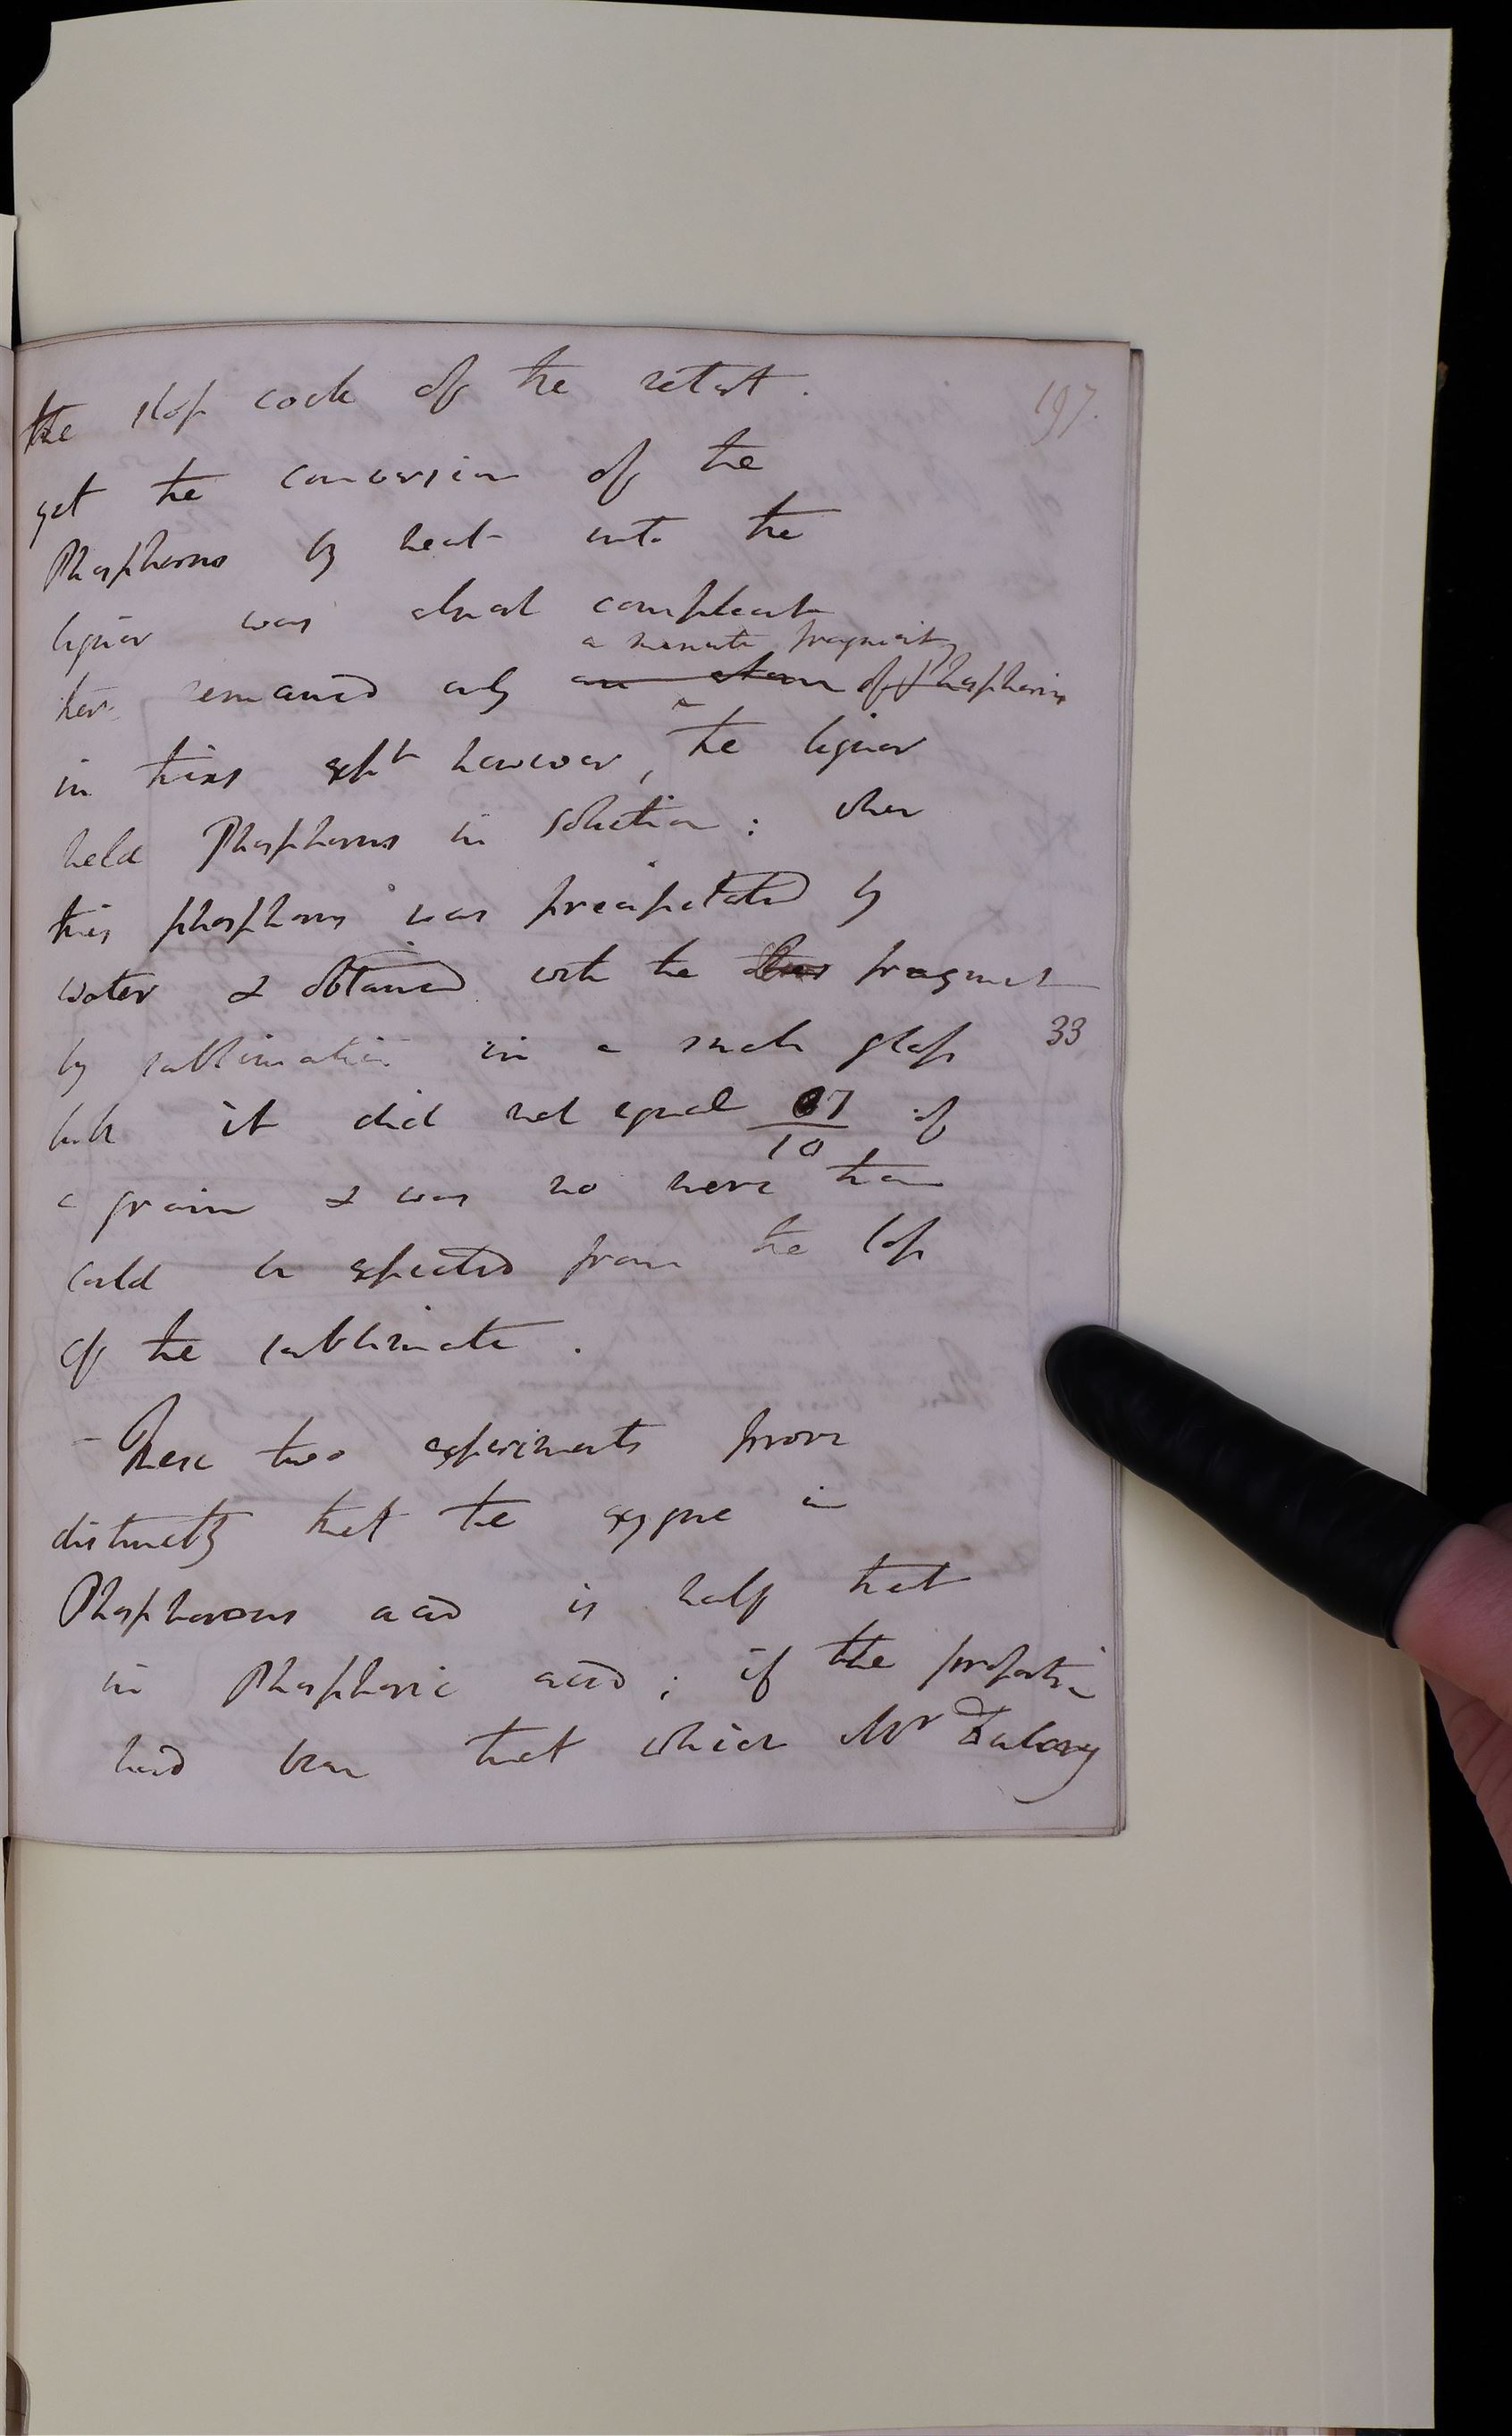 197.
the stop cock of the retort.
yet the conversion of the
Phosphorus by heat into the
liquor was almost compleat
a minute fragment
there remained only an atom of Phosphorus
in this expt however, the liquor
held Phosphorus in solution: when
this phosphorus was precipitated by
water & obtained with the fragment
by sublimation in a small glass 33
tube it did not equal 37/10 of
a grain & was no more than
could be expected from the loss
of the sublimate.
- These two experiments prove
distinctly that the oxygne in
Phosphorous acid is half that
in Phosphoric acid; if the proportion
had been that which Mr Dulong